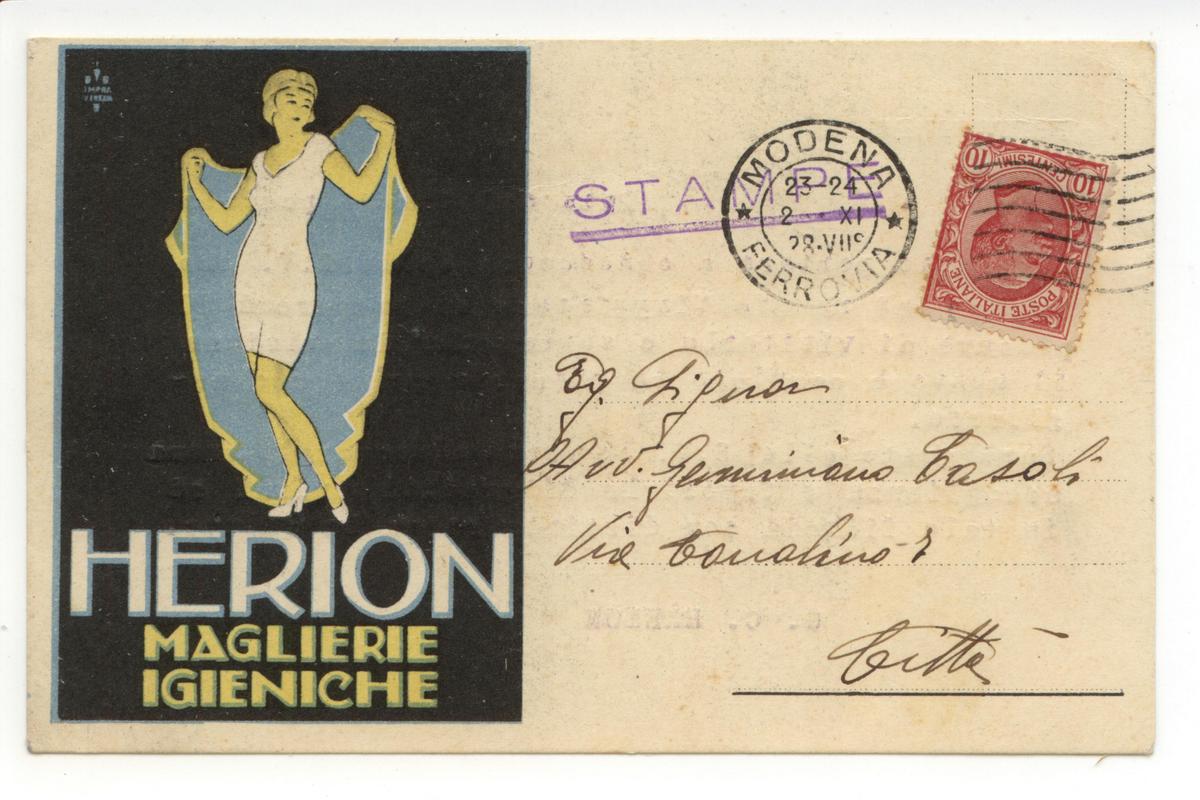 IMPRA
VENEZIA
HERION
MAGLIERIE
IGIENICHE
STAMPE
MODENA
23-24
2 XI
28·VIIº
FERROVIA
10 CENTESIMI 10
POSTE ITALIANE
Eg. Signor
Avv. Geminiano Fasoli
Via
Città